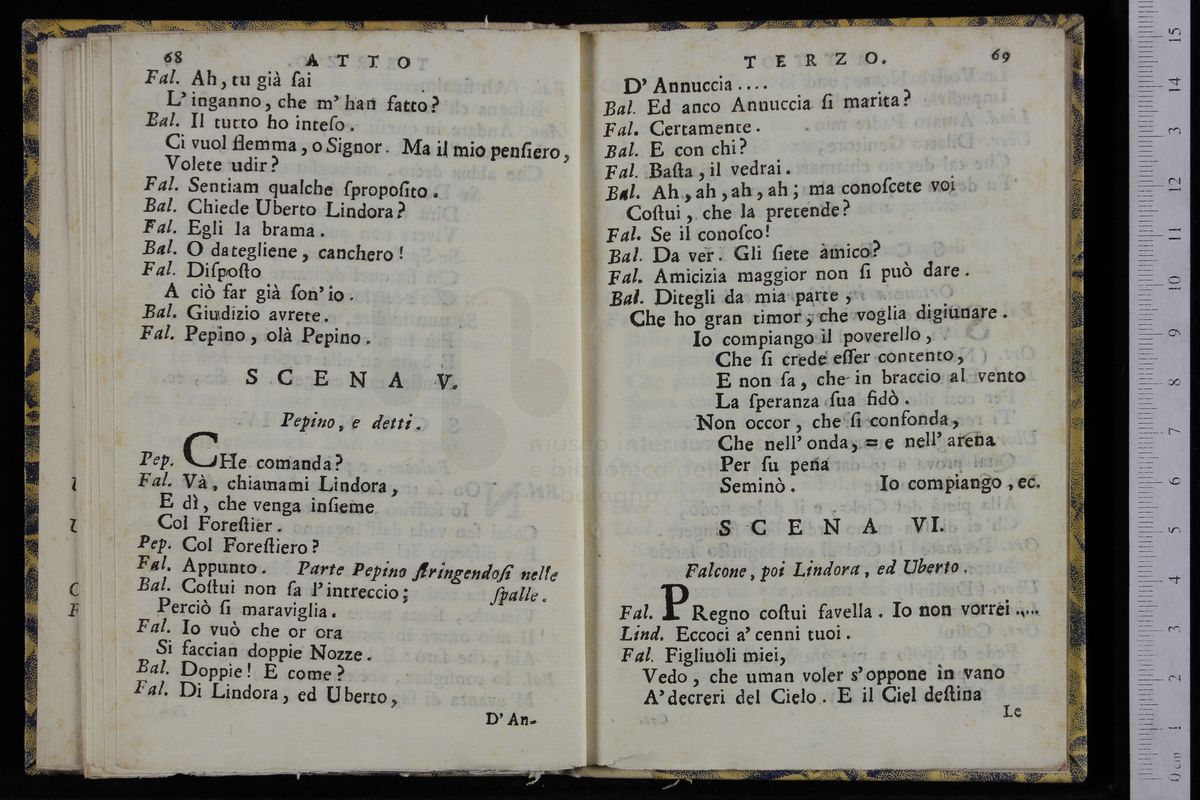 68 ATTO
Fal. Ah, tu già ſai
L'inganno, che m'han fatto?
Bal. Il tutto ho inteſo.
Ci vuol flemma, o Signor. Ma il mio penſiero,
Volete udir?
Fal. Sentiam qualche ſpropoſito.
Bal. Chiede Uberto Lindora?
Fal. Egli la brama.
Bal. O dategliene, canchero!
Fal. Diſpoſto
A ciò far già ſon'io.
Bal. Giudizio avrete.
Fal. Pepino, olà Pepino.
SCENA V.
Pepino, e detti.
Pep. CHe comanda?
Fal. Và, chiamami Lindora,
E dì, che venga inſieme
Col Foreſtier.
Pep. Col Foreſtiero?
Fal. Appunto. Parte Pepino ſtringendoſi nelle
Bal. Coſtui non ſa l'intreccio; ſpalle.
Perciò ſi maraviglia.
Fal. Io vuò che or ora
Si faccian doppie Nozze.
Bal. Doppie! E come?
Fal. Di Lindora, ed Uberto,
D'An-
TERZO. 69
D'Annuccia....
Bal. Ed anco Annuccia ſi marita?
Fal. Certamente.
Bal. E con chi?
Fal. Baſta, il vedrai.
Bal. Ah, ah, ah, ah; ma conoſcete voi
Coſtui, che la pretende?
Fal. Se il conoſco!
Bal. Da ver. Gli ſiete amico?
Fal. Amicizia maggior non ſi può dare.
Bal. Ditegli da mia parte,
Che ho gran timor, che voglia digiunare.
Io compiango il poverello,
Che ſi crede eſſer contento,
E non ſa, che in braccio al vento
La ſperanza ſua fidò.
Non occor, che ſi confonda,
Che nell'onda, = e nell'arena
Per ſu pena
Seminò. Io compiango, ec.
SCENA VI.
Falcone, poi Lindora, ed Uberto.
Fal. PRegno coſtui favella. Io non vorrei .....
Lind. Eccoci a' cenni tuoi.
Fal. Figliuoli miei,
Vedo, che uman voler s'oppone in vano
A'decreri del Cielo. E il Ciel deſtina
Le